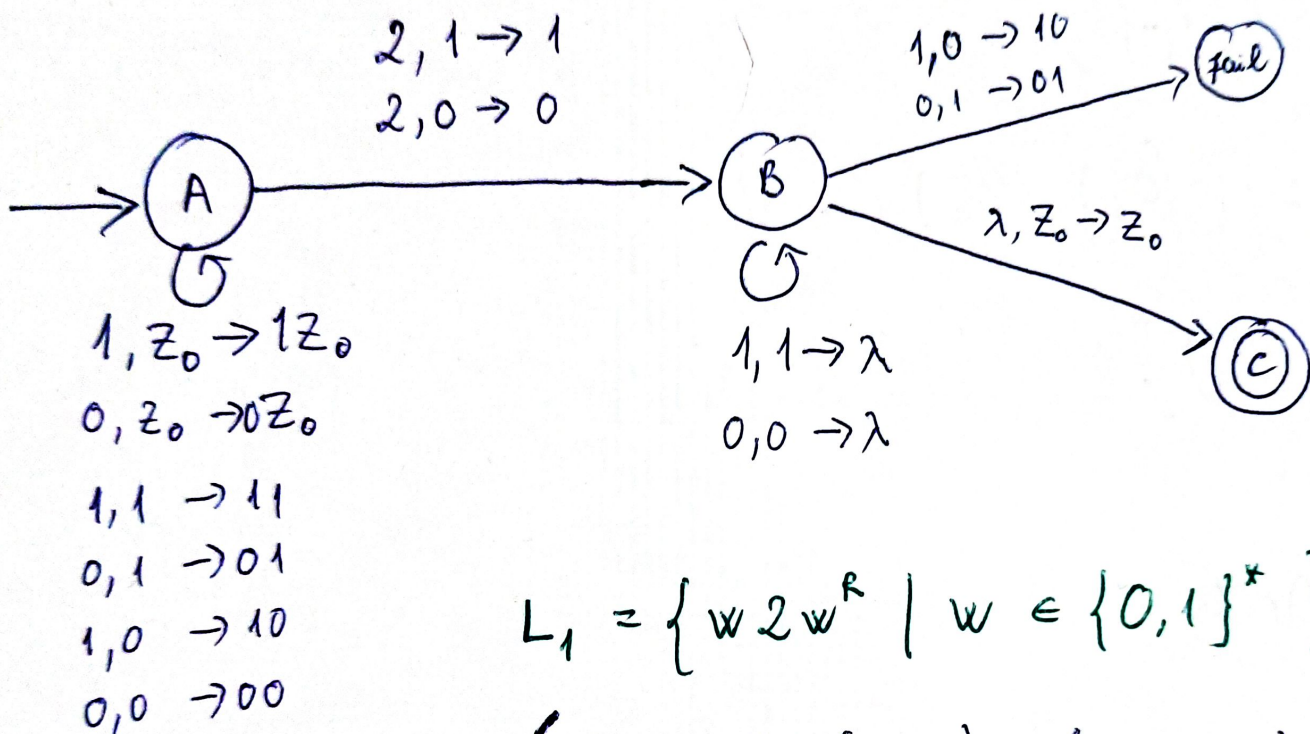 2, 1 → 1
2, 0 → 0
1, 0 → 10
0, 1 → 01
fail
A
B
λ, Z₀ → Z₀
C
1, Z₀ → 1Z₀
0, Z₀ → 0Z₀
1, 1 → 11
0, 1 → 01
1, 0 → 10
0, 0 → 00
1, 1 → λ
0, 0 → λ
L₁ = { w 2 wᴿ | w ∈ {0,1}*